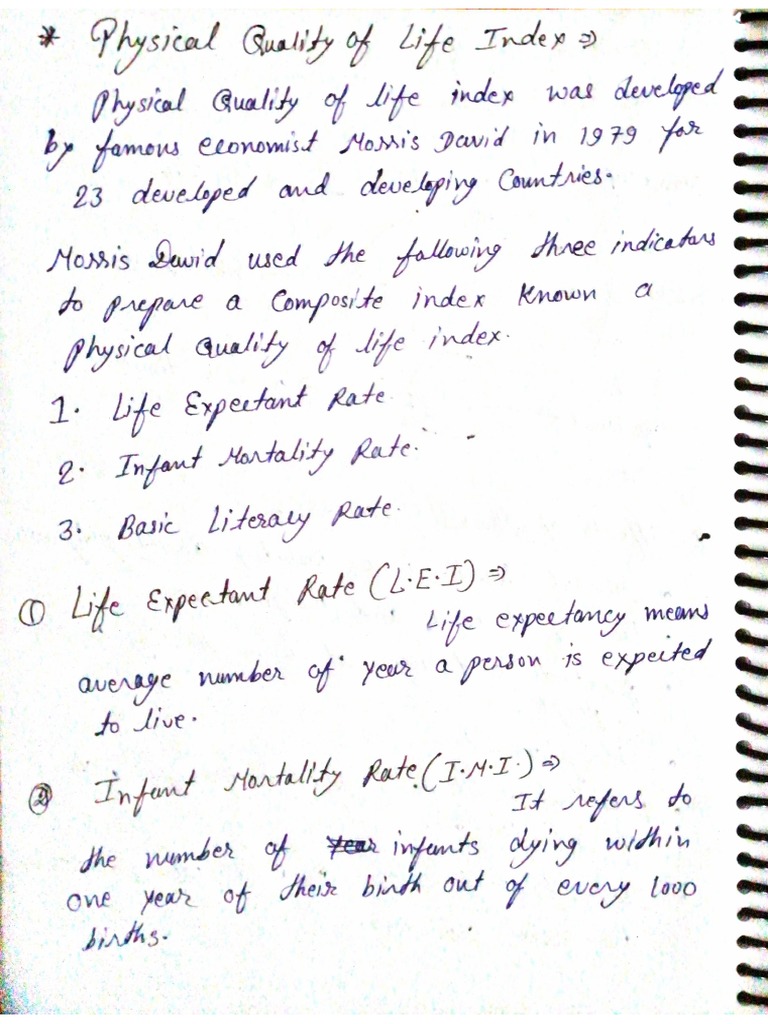 * Physical Quality of Life Index ⇒
Physical Quality of life index was developed
by famous economist Morris David in 1979 for
23 developed and developing Countries.
Morris David used the following three indicators
to prepare a Composite index Known a
Physical Quality of life index.
1. Life Expectant Rate.
2. Infant Mortality Rate.
3. Basic Literacy Rate.
① Life Expectant Rate (L.E.I) ⇒
Life expectancy means
average number of year a person is expected
to live.
② Infant Mortality Rate. (I.M.I.) ⇒
It refers to
the number of infants dying within
one year of their birth out of every 1000
births.